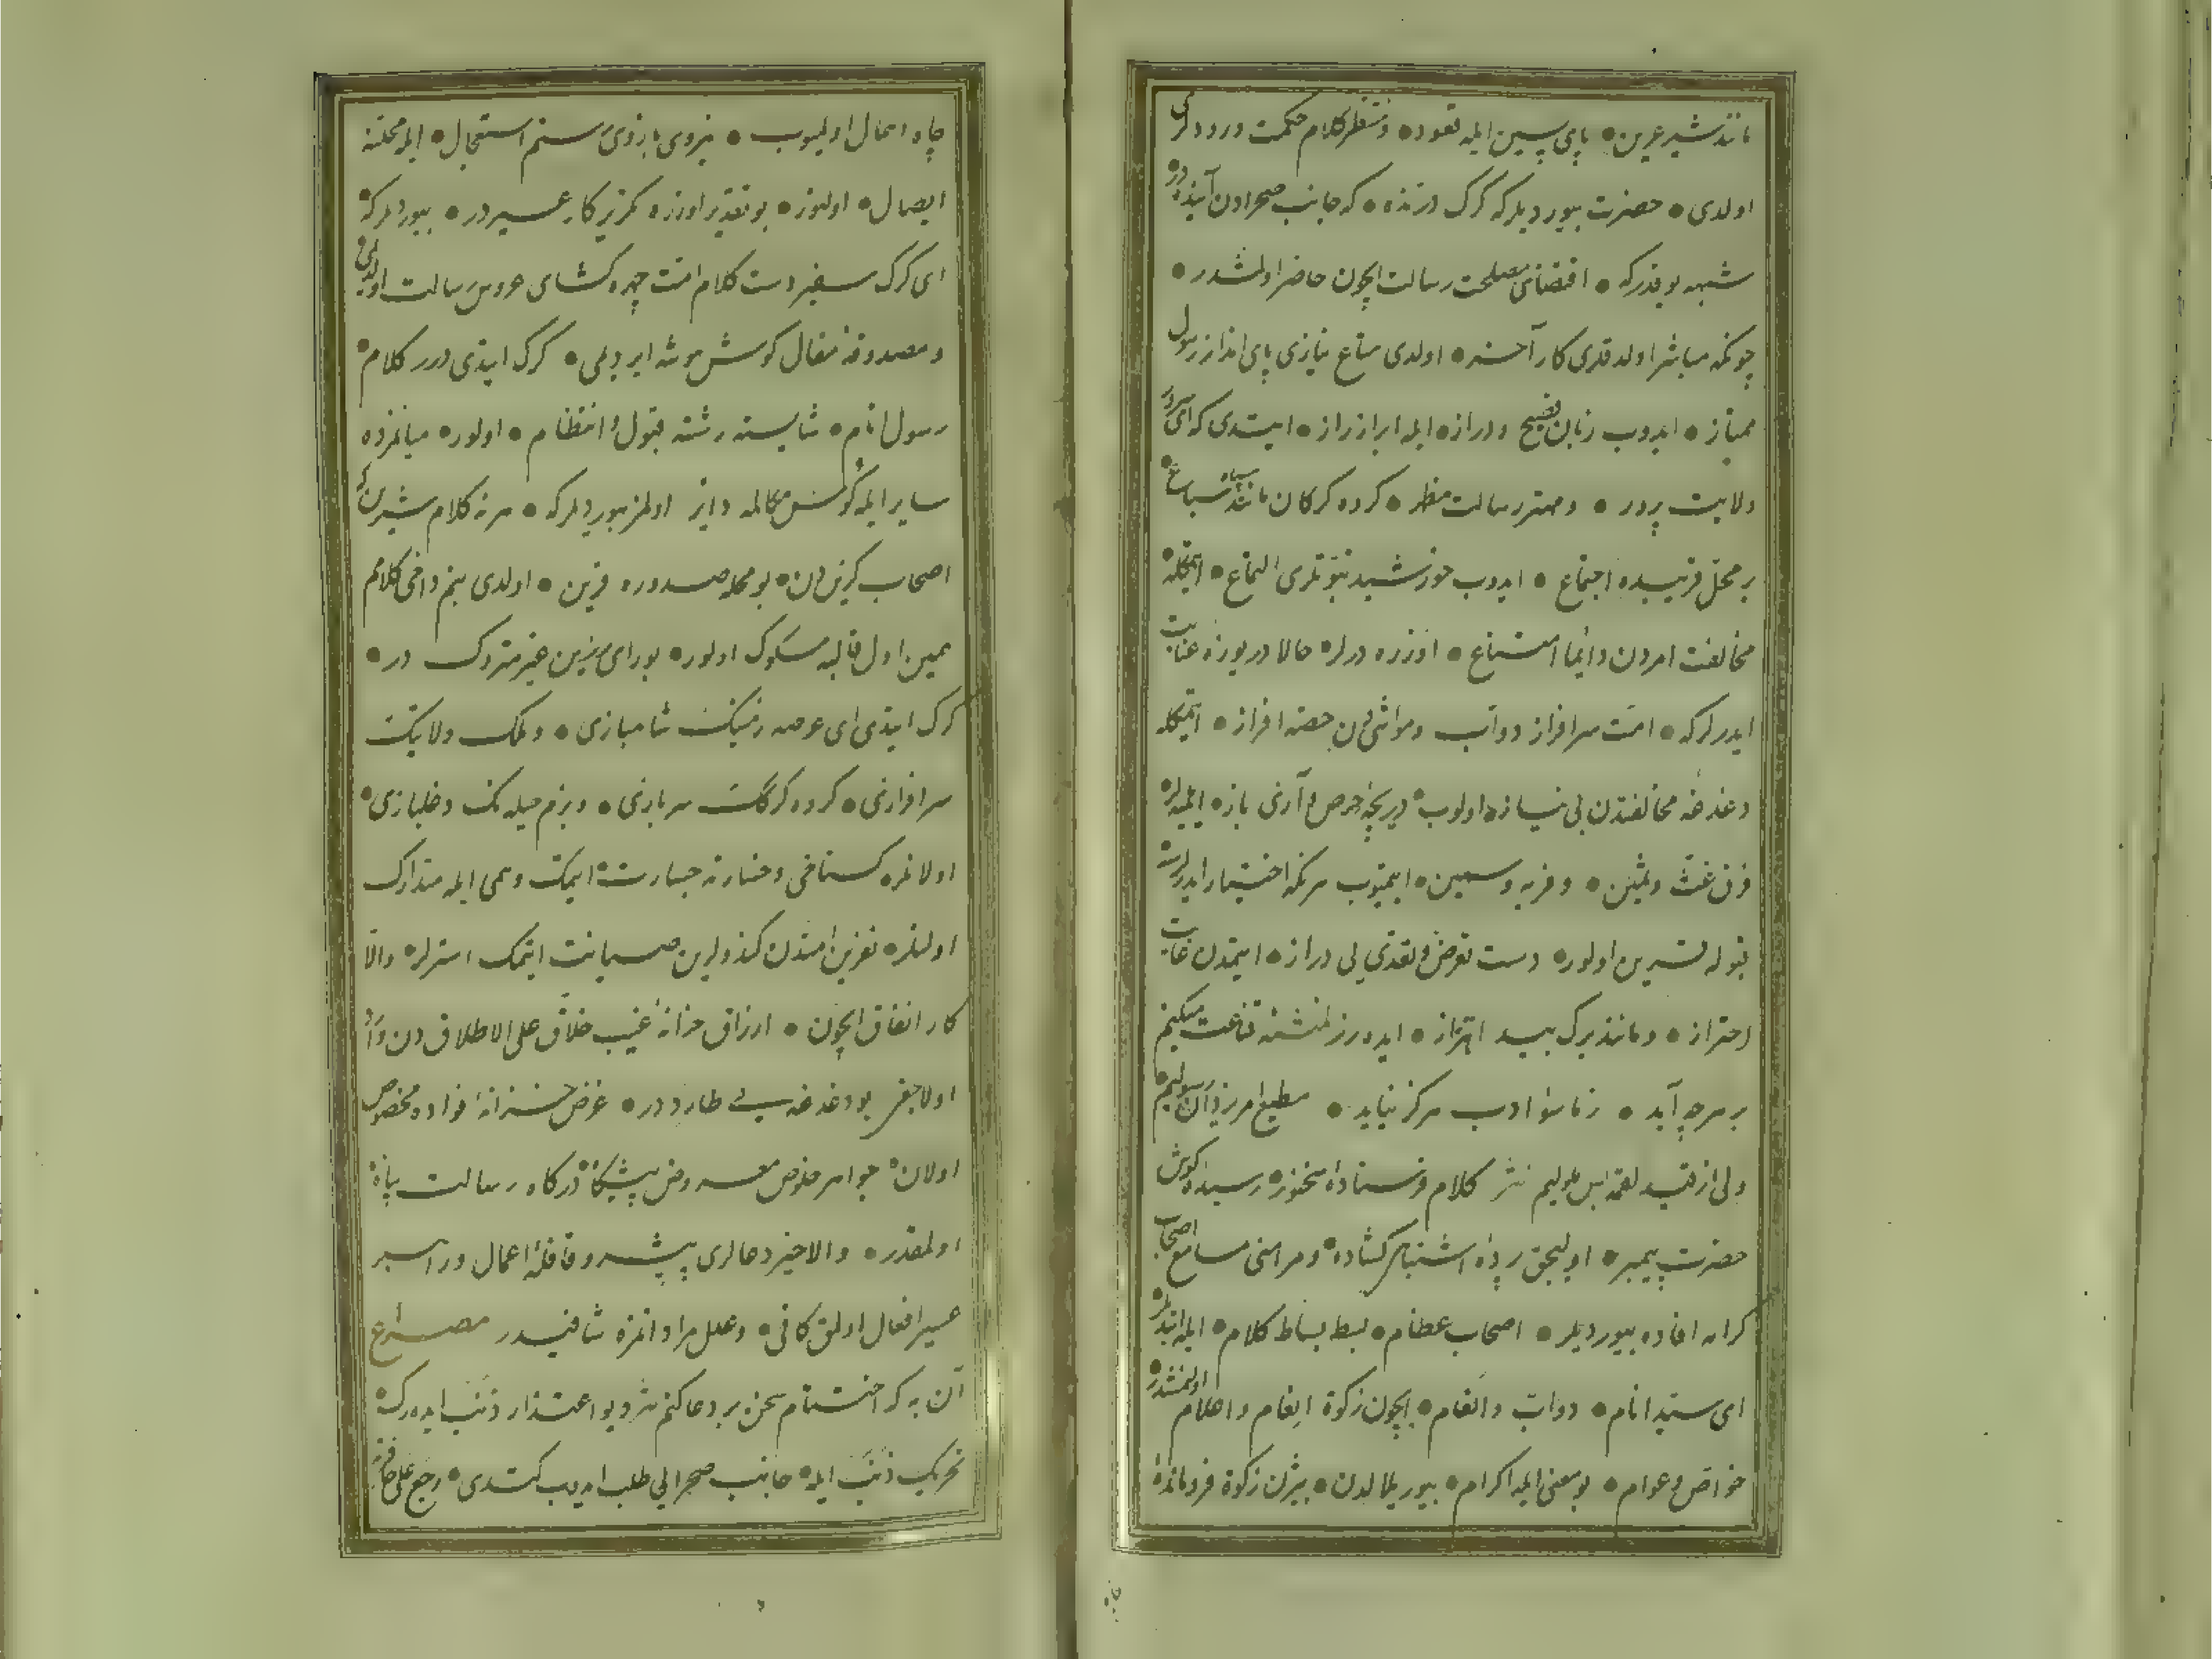 مانند شیر عرین • پای پسین ایله قعود • و منتظر کلام حکمت ورودلری
اولدی • حضرت بیوردیلر که کرک درنده • که جانب صحرادن آینده در
شبهه یوقدر که • اقتضای مصلحت رسالت ایچون حاضر اولمشدر •
چونکه مباشر اولدقدی کار آخسنه • اولدی متاع نیازی پای انداز رسول
ممتاز • ایدوب زبان فصیح و دراز • ایله ابراز راز • ایتدی که ای سرور
ولایت پرور • و مهتر رسالت مظهر • کروه کرکان مانند سپاه سباع
بر محل قریبده اجتماع • ایدوب خورشید نبوتلری التماع • ایتمکله
مخالفت امردن دائما امتناع • اوزره درلر • حالا دریوزه عنایت
ایدرلر که • امت سرافراز دواب و مواشیدن حصه افراز • ایتمکله
دغدغه مخالفتدن بی نیاز • اولوب • دریچه حرص و آزی باز • ایلمیه لر
فرق غث و ثمین • و فربه و سمین • ایتمیوب هر نکه اختیار ایدرلرسه
قبوله قرین اولور • دست تعرض و تعدی یی دراز • ایتمدن غایت
احتراز • و مانند برک بید اهتزاز • ایده رز لمنشئه قناعت میکنیم
بر هرچه آید • زما سوء ادب هرکز نیاید • مطیع امر یزدان رسولیم
ولی از قید لقمه بس ملولیم نثر کلام فرستاده سخنور • رسیده کوش
حضرت پیمبر • اولیجق پرده اشتباهی کشاده • و مراسنی مسامع اصحاب
کرامه افاده بیوردیلر • اصحاب عظام • بسط بساط کلام • ایله ایتدیلر
ای سید انام • دواب و انعام • ایچون زکوة انعام و اعلام اولنمشدر
خواص و عوام • بو معنی ایله اکرام • بیوریلمالدن • بیژن زکوة فرومانده
چاه اهمال اولمیوب • نیروی بازوی رستم استعجال • ایله محلنه
ایصال • اولنور • بو تقدیر اوزره مکرر کار عسیر در • بیوردیلر که
ای کرک سفیر دست کلام امت چهره کشای عروس رسالت اولدی
و مصدوقه مقال کوش هوشه ایردیمی • کرک ایتدی درر کلام
رسول انام • شایسته رشته قبول و انتظام • اولور • میانمزده
سایر ایله گوش مکالمه دایر اولمز بیوردیلر که • هر نه کلام شیرین که
اصحاب کزیندن • بو محله صدوره قرین • اولدی بنم داخی کلامم
همین اول قالبه مسبوک اولور • بو رای رزین غیر متروک در •
کرک ایتدی ای عرصه رزمیکت شاهبازی • و ملک ولایتک
سرافرازی • کروه کرگانک سربازی • و بزم حیله نک دغلبازی
اولانلره کستاخی و خسارته جسارت • ایتمک وهمی ایله متدارک
اولنلر • نفرین امتدن کندولرین صیانت ایتمک استرلر • والا
کار انفاق ایچون • ارزاق خزانه غیب خلاق علی الاطلاق دن
اولاجغی بو دغدغه یی طارد در • غرض خزانه فواده مخصوص
اولان • جواهر خلوص معروض پیشکاه درکاه رسالت پناه
اولمقدر • والا خیر دعالری پیشرو قافله اعمال و راهبر
عسیر افعال اولمق کافی • و علل مراد انمزه شافیدر مصراع
آن به که اختتام سخن بر دعا کنم نثر دیو اعتذار ذنب ایده رک
تحریک ذنب ایله • جانب صحرایی طلب ایدیب کتدی • رجع علی حافرته